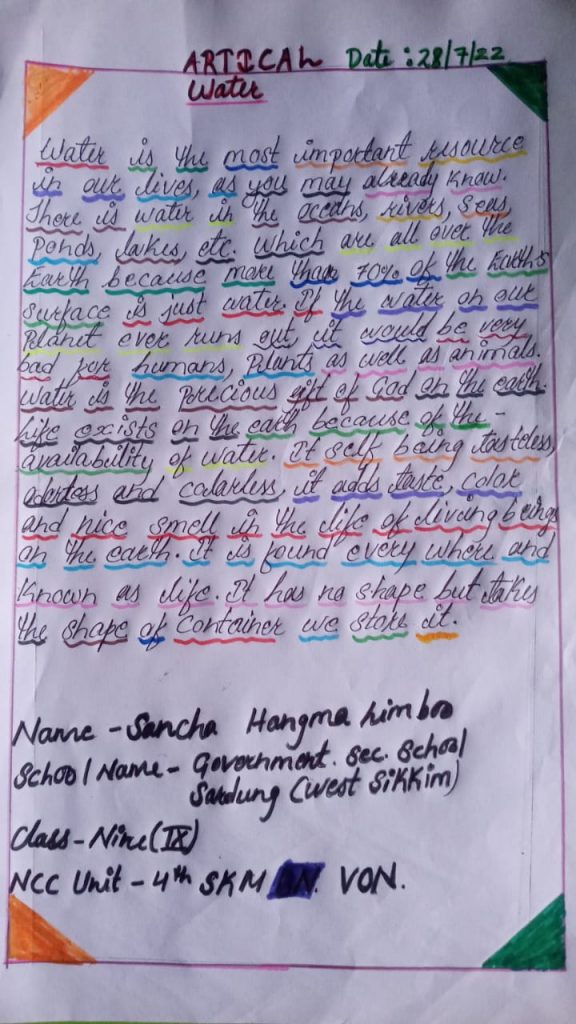 ARTICAL Date : 28/7/22
Water
Water is the most important resource
in our lives, as you may already know.
There is water in the oceans, rivers, seas,
Ponds, lakes, etc. which are all over the
Earth because more than 70% of the Earth's
surface is just water. If the water on our
Planet ever runs out, it would be very
bad for humans, Plants as well as animals.
Water is the precious gift of God on the earth.
Life exists on the earth because of the -
availability of water. It self being tasteless,
oderless and colorless, it adds taste, color
and nice smell in the life of living beings
on the earth. It is found every where and
Known as life. It has no shape but takes
the shape of Container we store it.
Name - Sancha Hangma Limboo
School Name - Government. sec. school
Sardung (west Sikkim)
Class - Nine (IX)
NCC Unit - 4th SKM VON.